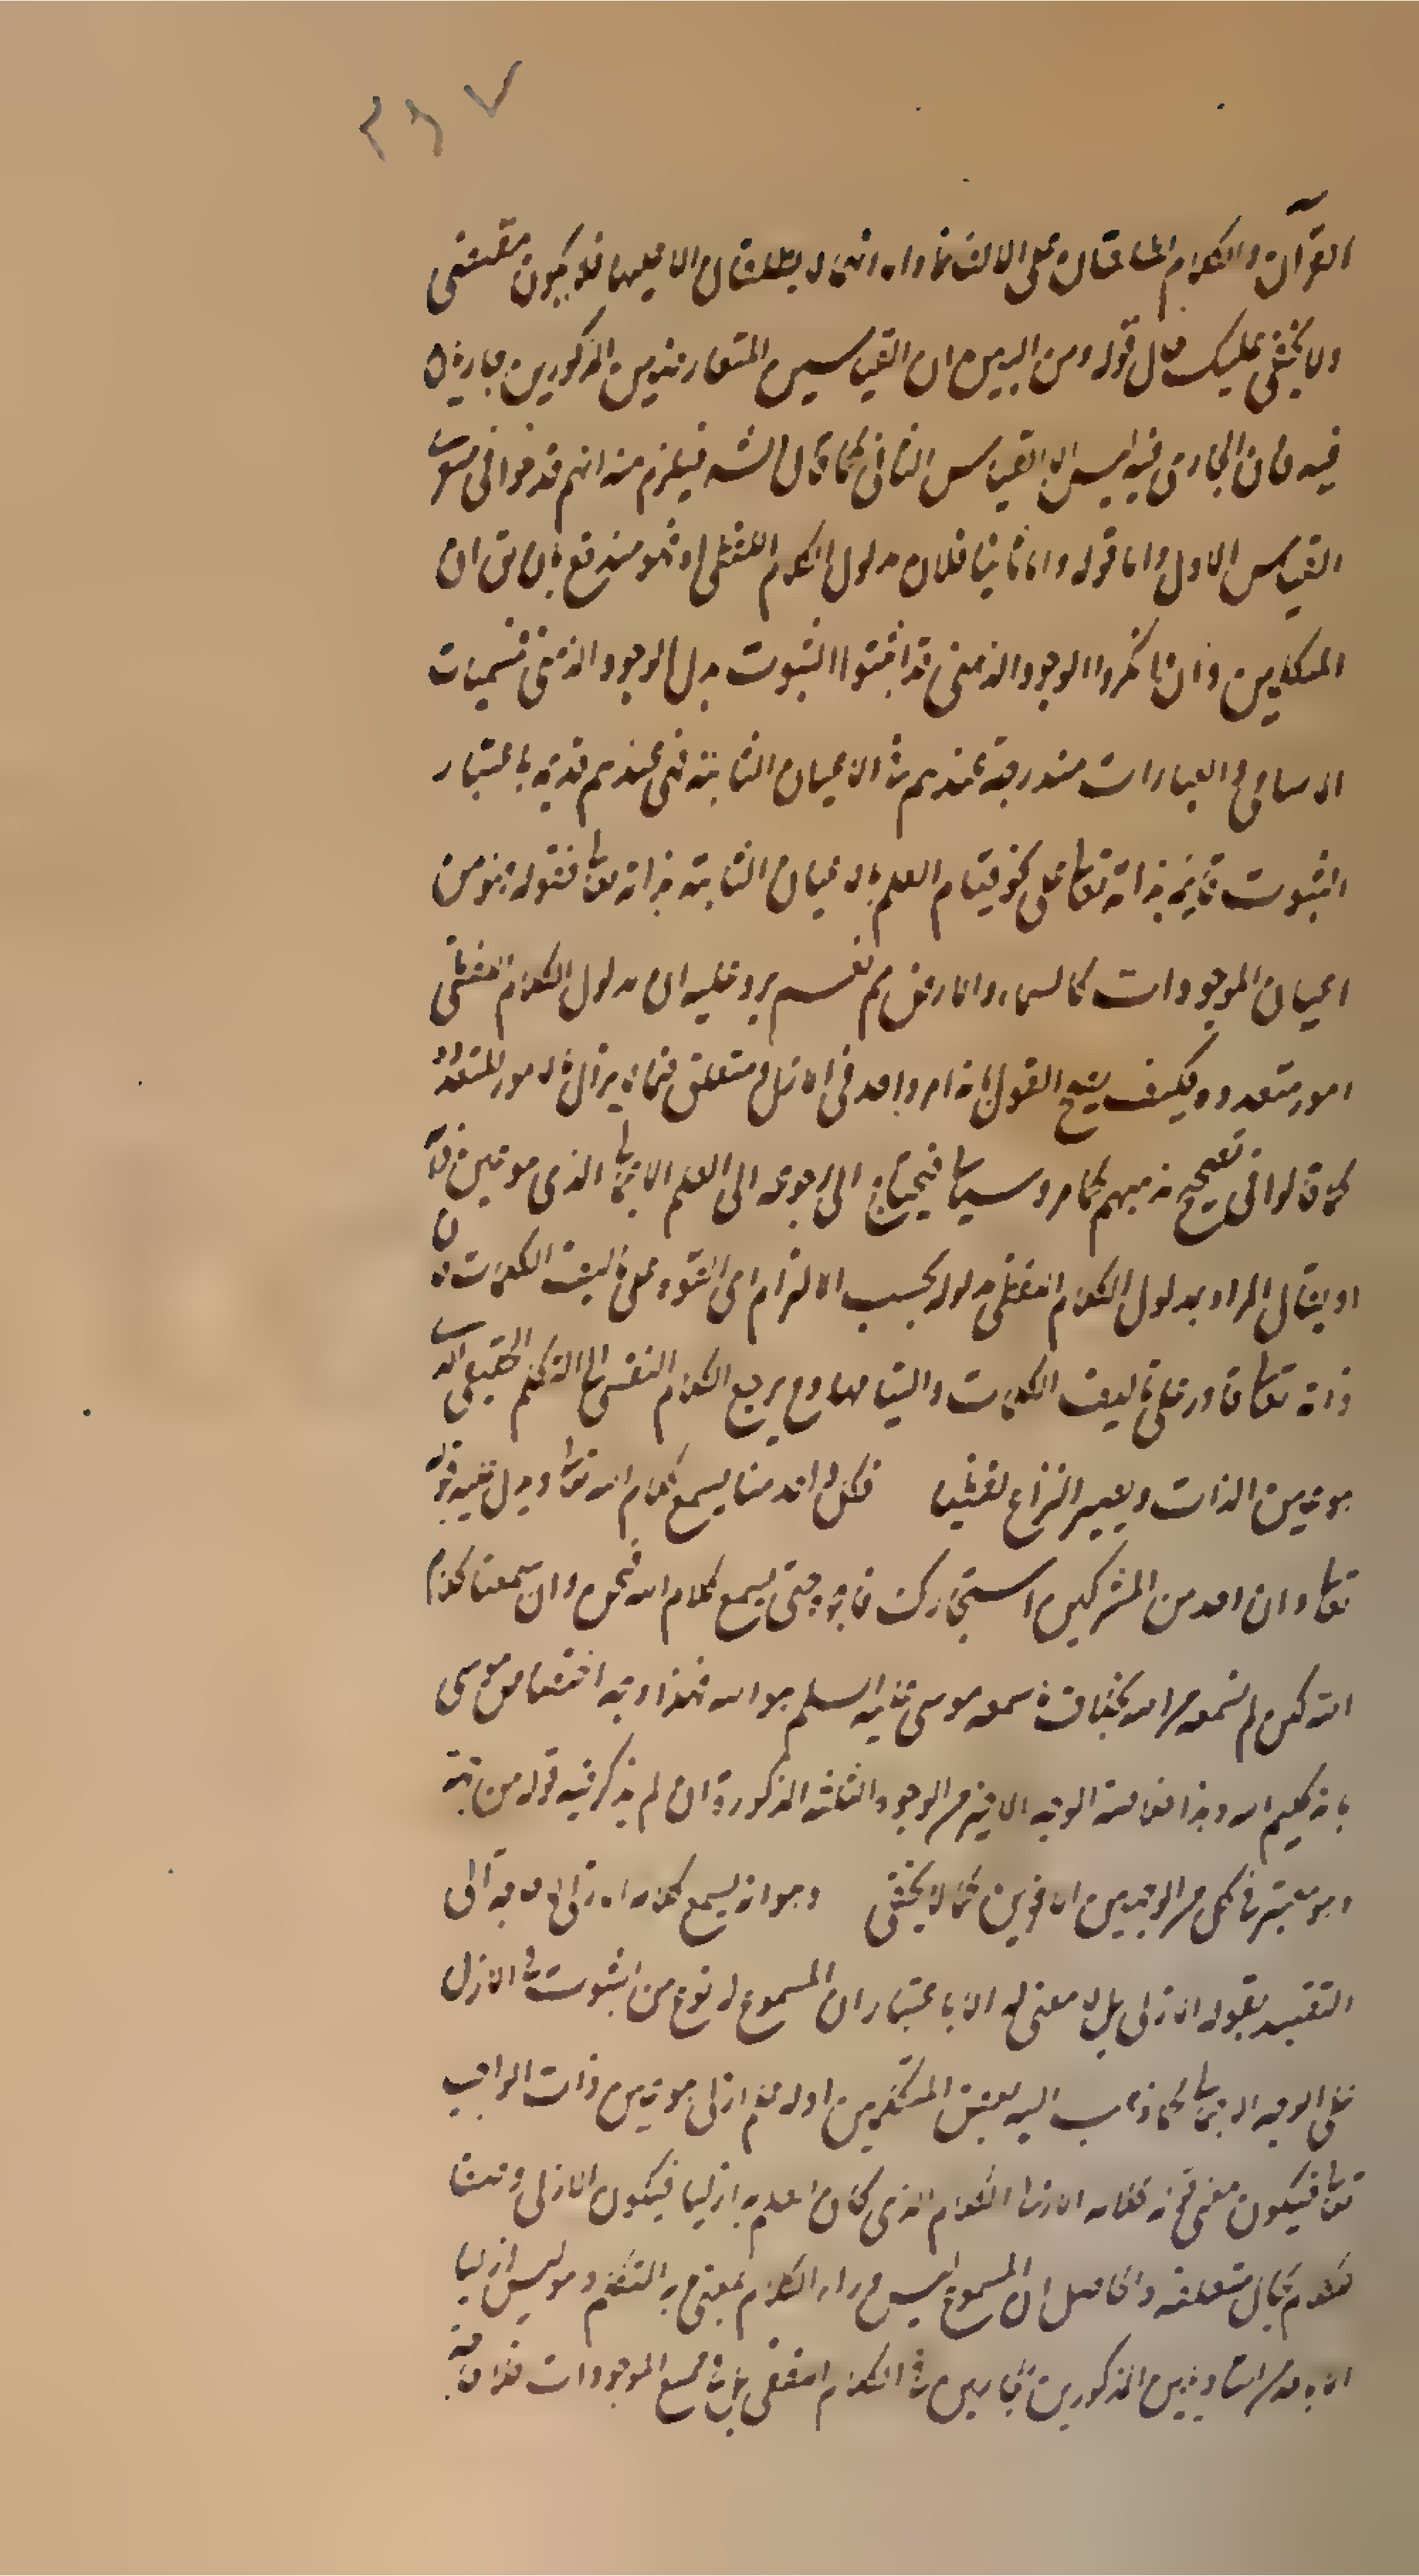 ٢٦٧
القرآن والكلام المطلقان على الالفاظ وانهما لا يطلقان الا عليها فلا يكون مقتضى
ولا يخفى عليك حال قوله ومن البين ان القياسين المتعارضين المذكورين جاريان
فيه فان الجارى فيه ليس الا القياس الثانى كما قال الش فيلزم منه انهم قدحوا فى
القياس الاول واما قوله واما ثانيا فلان مدلول الكلام اللفظى اه فهو مندفع بان يق ان
المتكلمين وان انكروا الوجود الذهنى قد اثبتوا الثبوت بدل الوجود الذهنى
الاسامى والعبارات مندرجة عندهم فى الاعيان الثابتة فهى عندهم قديمة باعتبار
الثبوت قايمة بذاته تعا على نحو قيام العلم بالاعيان الثابتة بذاته تعا فقوله هو من
اعيان الموجودات كالسماء والارض نعم يرد عليه ان مدلول الكلام اللفظى
امور متعددة فكيف يصح القول بانه امر واحد فى الازل متعلق فيما لا يزال بالامور المتعددة
كما قالوا فى تصحيح مذهبهم كما مر وسياتى فيحتاج الى رجوعه الى العلم الاجمالى الذى هو عين
او يقال المراد بمدلول الكلام اللفظى مدلوله بحسب الالتزام اى القوة على تاليف الكلمات
ذاته تعا قادر على تاليف الكلمات والقائها وح يرجع الكلام النفسى الى التكلم الحقيقى
هو عين الذات ويصير النزاع لفظيا فكل واحد منا يسمع كلام الله تعا ويدل عليه قوله
تعا وان احد من المشركين استجارك فاجره حتى يسمع كلام الله فنحن وان سمعنا كلام
الله لكن لم نسمعه من الله بخلاف ما سمعه موسى عليه السلم هو الله فهذا وجه اختصاص موسى
بانه كليم الله وهذا خلاصة الوجه الاخير من الوجوه الثلثة المذكورة وان لم يذكر فيه قوله من جهة
وهو معتبر فى كل من الوجهين الاخرين كما لا يخفى وهو انه يسمع كلامه الازلى لا حاجة الى
التقييد بقوله الازلى بل لا معنى له الا باعتبار ان المسموع له نوع من الثبوت فى الازل
على الوجه الاجمالى كما ذهب اليه بعض المتكلمين او له علم ازلى هو عين ذات الواجب
تعا فيكون معنى كلامه الازلى الكلام الذى كان العلم به ازليا فيكون الازلى وصفا
للكلام بحال متعلقه والحاصل ان المسموع ليس وراء الكلام بمعنى ما به التكلم وهو ليس ازليا
الا باحد التاويلين المذكورين الجاريين فى الكلام اللفظى بل فى جميع الموجودات